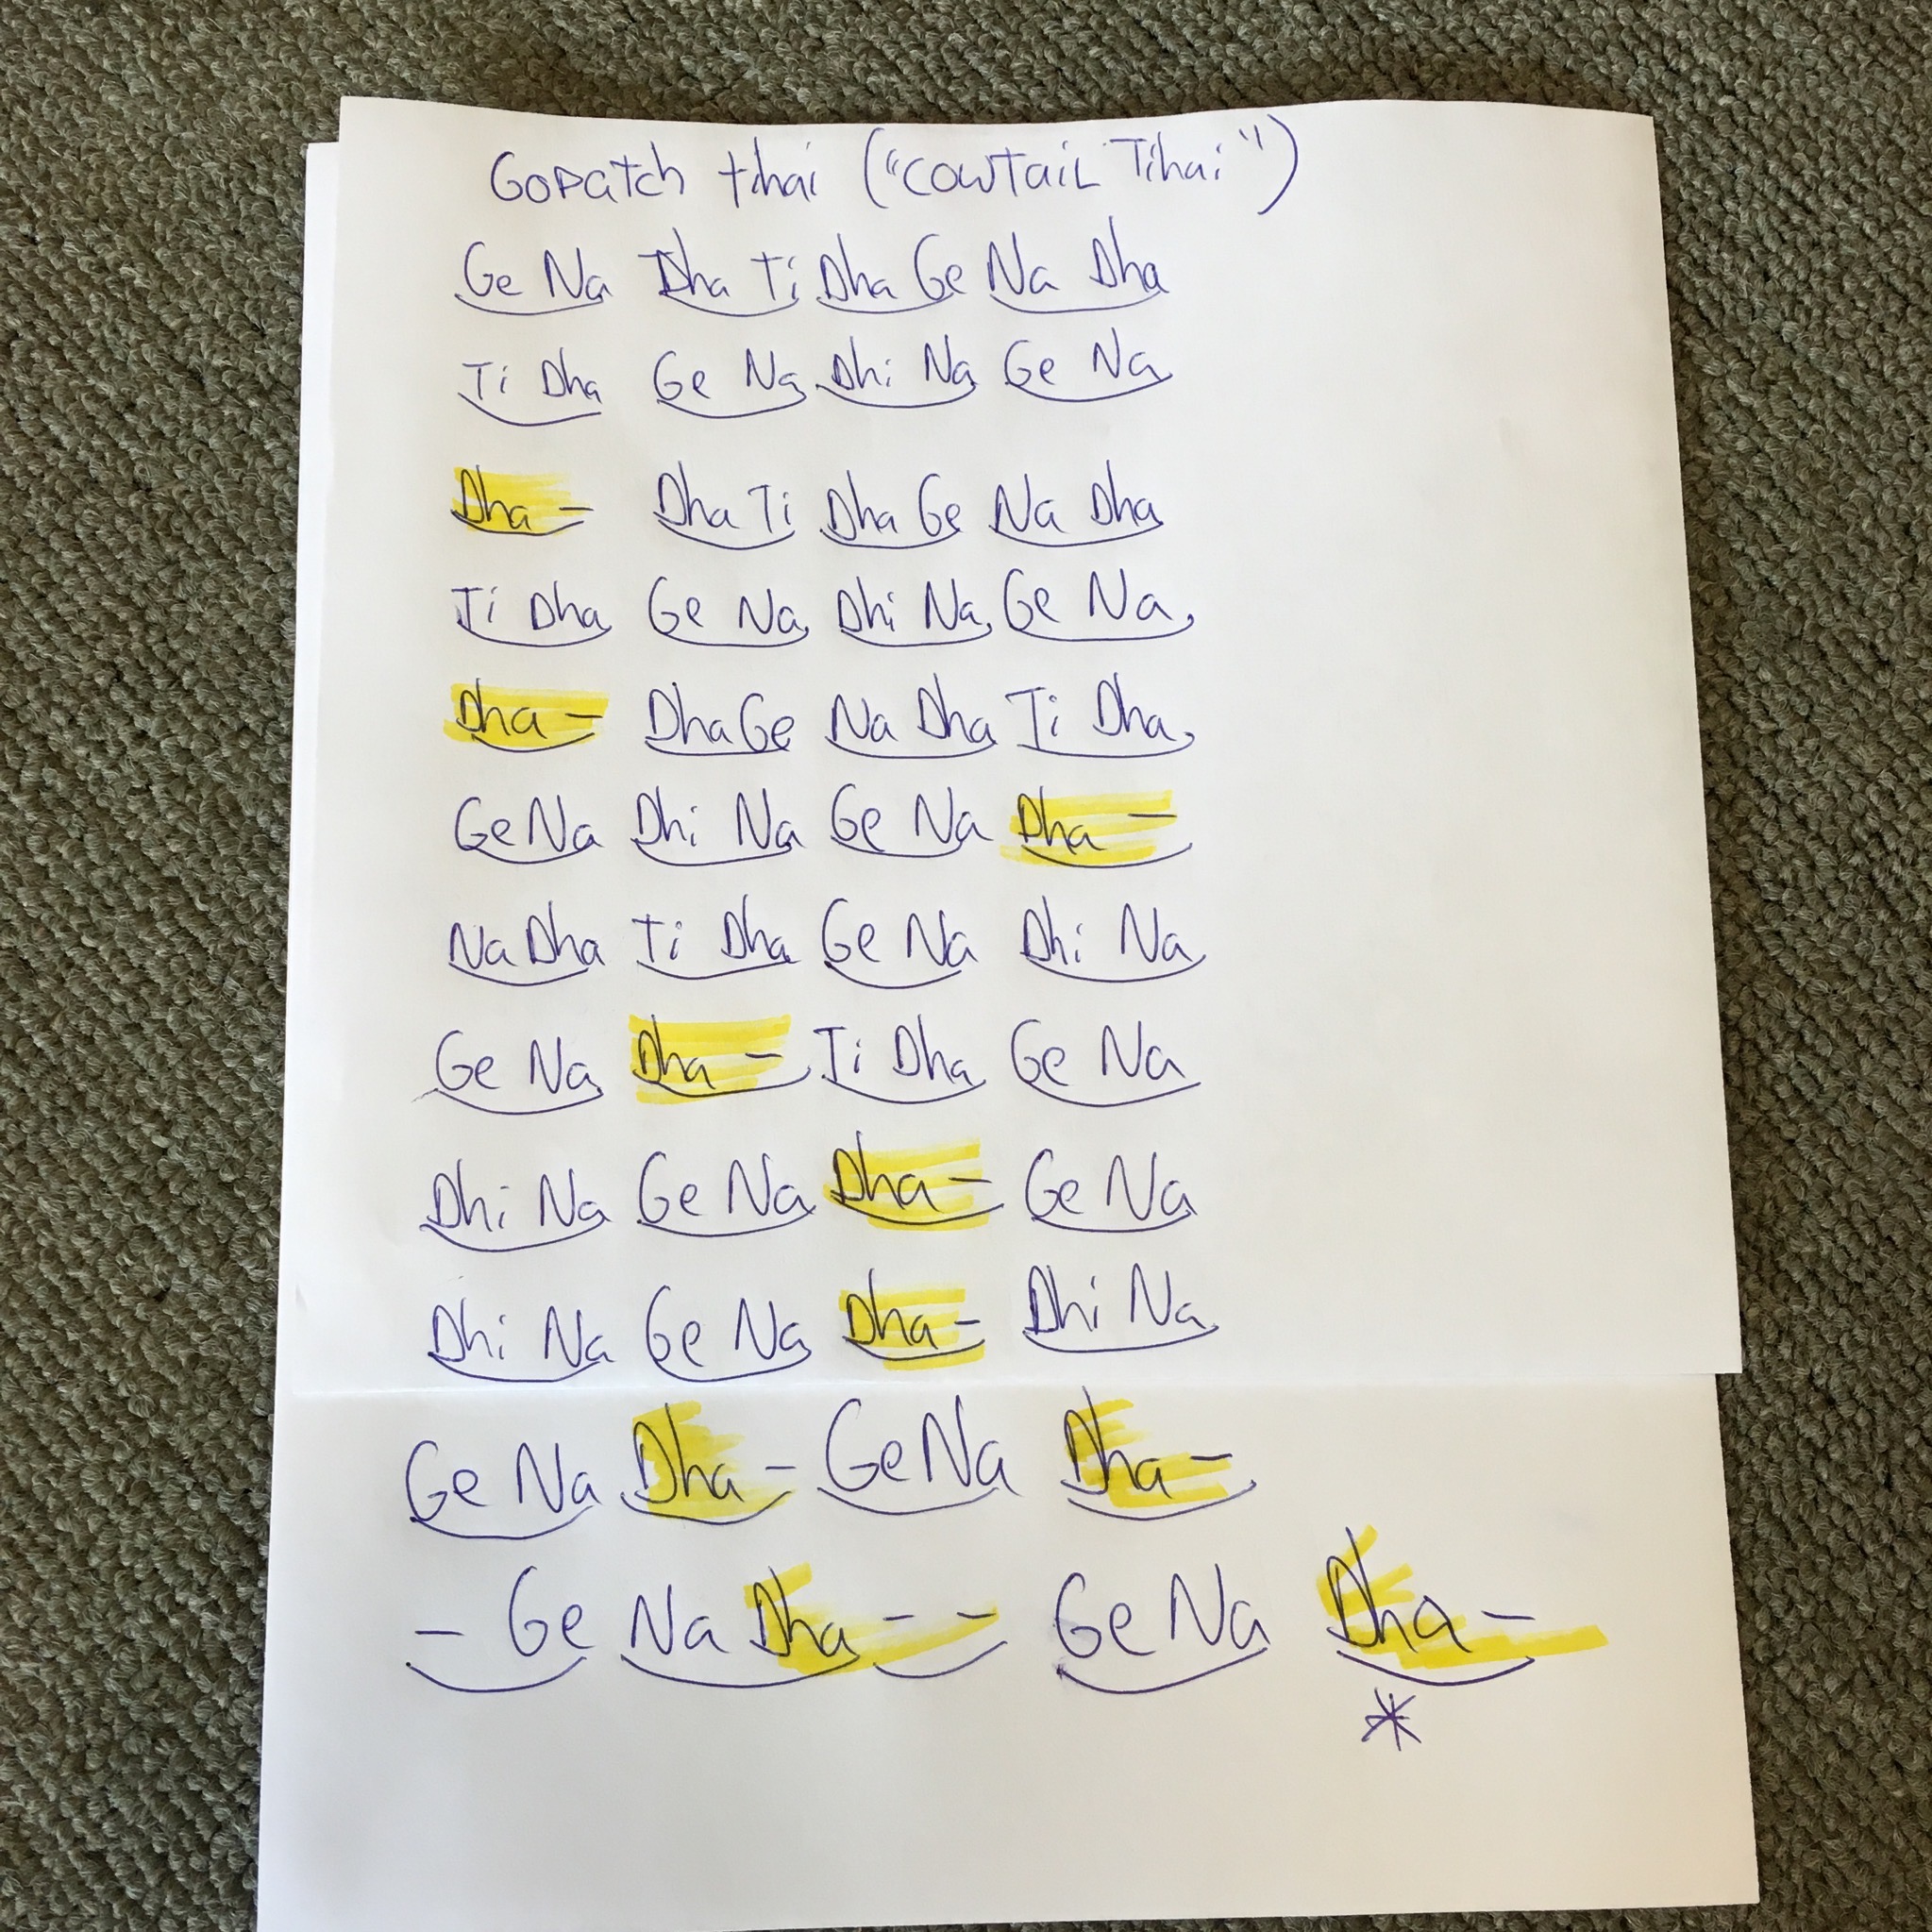 Gopatch tihai ("Cowtail Tihai")
Ge Na Dha Ti Dha Ge Na Dha
Ti Dha Ge Na Dhi Na Ge Na
Dha - Dha Ti Dha Ge Na Dha
Ti Dha Ge Na Dhi Na Ge Na
Dha - Dha Ge Na Dha Ti Dha
Ge Na Dhi Na Ge Na Dha -
Na Dha Ti Dha Ge Na Dhi Na
Ge Na Dha - Ti Dha Ge Na
Dhi Na Ge Na Dha - Ge Na
Dhi Na Ge Na Dha - Dhi Na
Ge Na Dha - Ge Na Dha -
- Ge Na Dha - - Ge Na Dha -
*